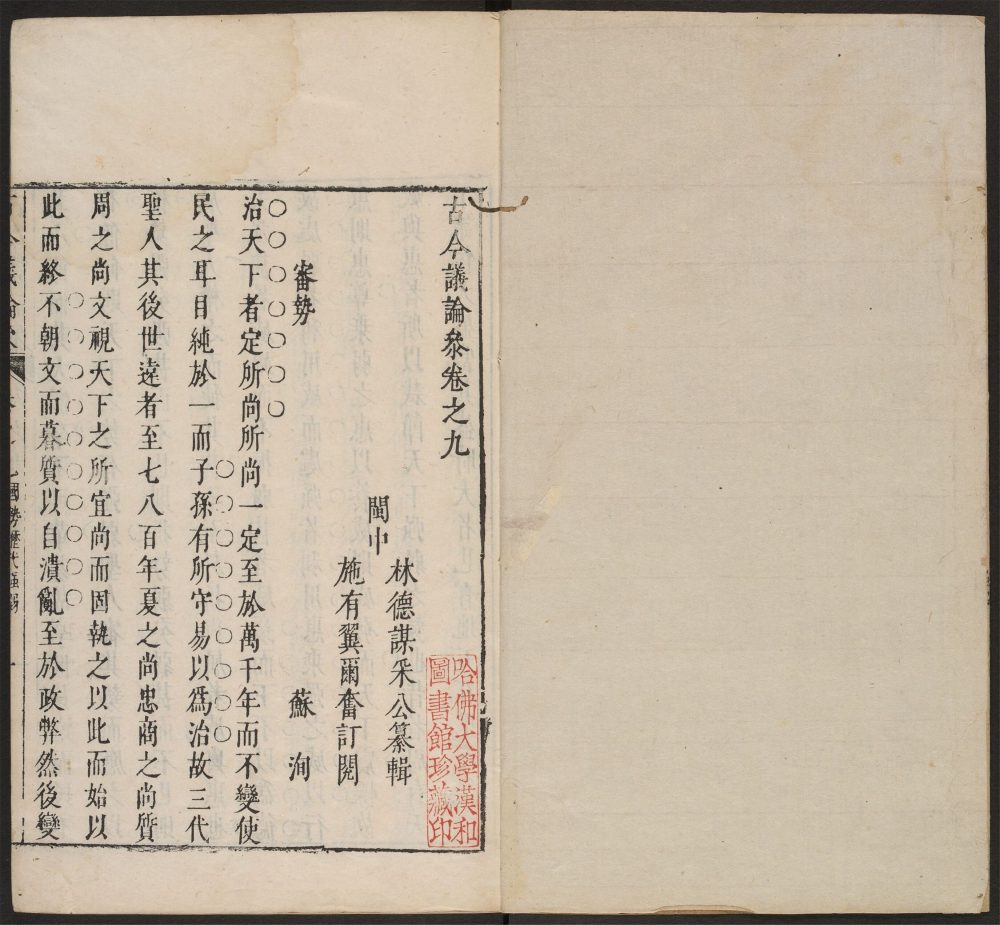 古今議論叅卷之九
閩中
林德謀采公纂輯
施有翼爾奮訂閱
哈佛大學漢和
圖書館珍藏印
審勢
蘇洵
治天下者定所尚所尚一定至於萬千年而不變使
民之耳目純於一而子孫有所守易以爲治故三代
聖人其後世遠者至七八百年夏之尚忠商之尚質
周之尚文視天下之所宜尚而固執之以此而始以
此而終不朝文而暮質以自潰亂至於政弊然後變
國勢歷代強弱
一